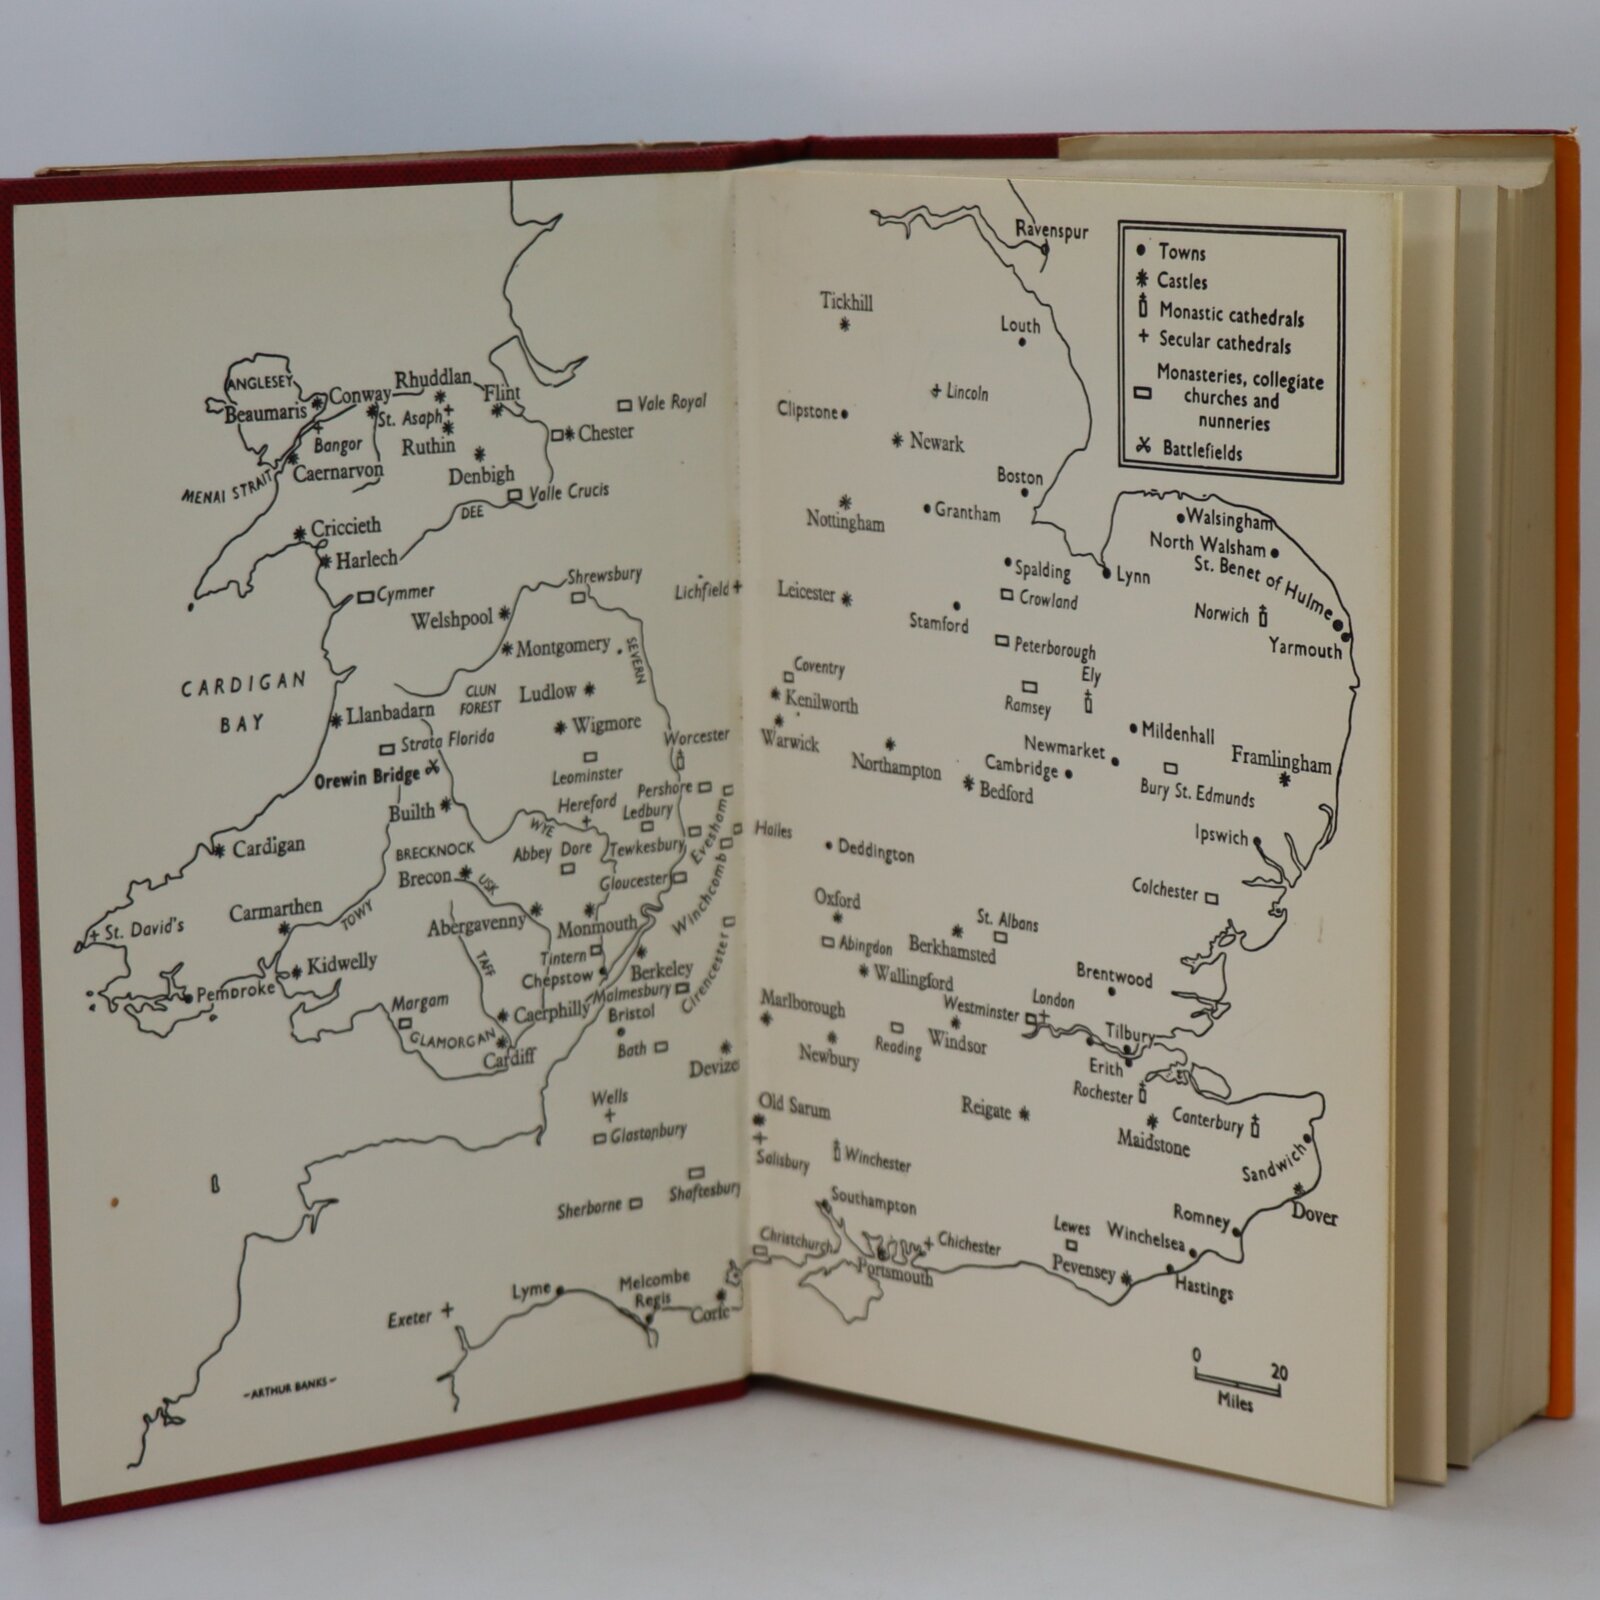 ANGLESEY
Beaumaris
Conway
Rhuddlan
Flint
St. Asaph
Bangor
Ruthin
Caernarvon
Denbigh
MENAI STRAIT
Vale Royal
Chester
Valle Crucis
DEE
Criccieth
Harlech
Cymmer
Shrewsbury
Lichfield
Welshpool
Montgomery
SEVERN
CARDIGAN
BAY
CLUN
FOREST
Ludlow
Llanbadarn
Wigmore
Strata Florida
Worcester
Orewin Bridge
Leominster
Pershore
Builth
Hereford
Ledbury
Evesham
WYE
Cardigan
BRECKNOCK
Abbey Dore
Tewkesbury
Brecon
USK
Gloucester
Winchcomb
Carmarthen
TOWY
Abergavenny
Monmouth
St. David's
TAFF
Tintern
Kidwelly
Chepstow
Berkeley
Cirencester
Pembroke
Margam
Caerphilly
Malmesbury
Bristol
GLAMORGAN
Cardiff
Bath
Devize
Wells
Glastonbury
Shaftesbury
Sherborne
Exeter
Lyme
Melcombe
Regis
Corfe
-ARTHUR BANKS-
Ravenspur
Towns
Castles
Monastic cathedrals
Secular cathedrals
Monasteries, collegiate
churches and
nunneries
Battlefields
Tickhill
Louth
Lincoln
Clipstone
Newark
Boston
Nottingham
Grantham
Walsingham
North Walsham
St. Benet of Hulme
Spalding
Lynn
Leicester
Crowland
Stamford
Norwich
Yarmouth
Peterborough
Coventry
Ely
Kenilworth
Ramsey
Warwick
Mildenhall
Newmarket
Northampton
Cambridge
Framlingham
Bedford
Bury St. Edmunds
Hailes
Deddington
Ipswich
Colchester
Oxford
St. Albans
Abingdon
Berkhamsted
Wallingford
Brentwood
Marlborough
Westminster
London
Newbury
Reading
Windsor
Tilbury
Erith
Rochester
Old Sarum
Reigate
Canterbury
Maidstone
Salisbury
Winchester
Sandwich
Southampton
Dover
Romney
Christchurch
Chichester
Lewes
Winchelsea
Portsmouth
Pevensey
Hastings
0 20
Miles